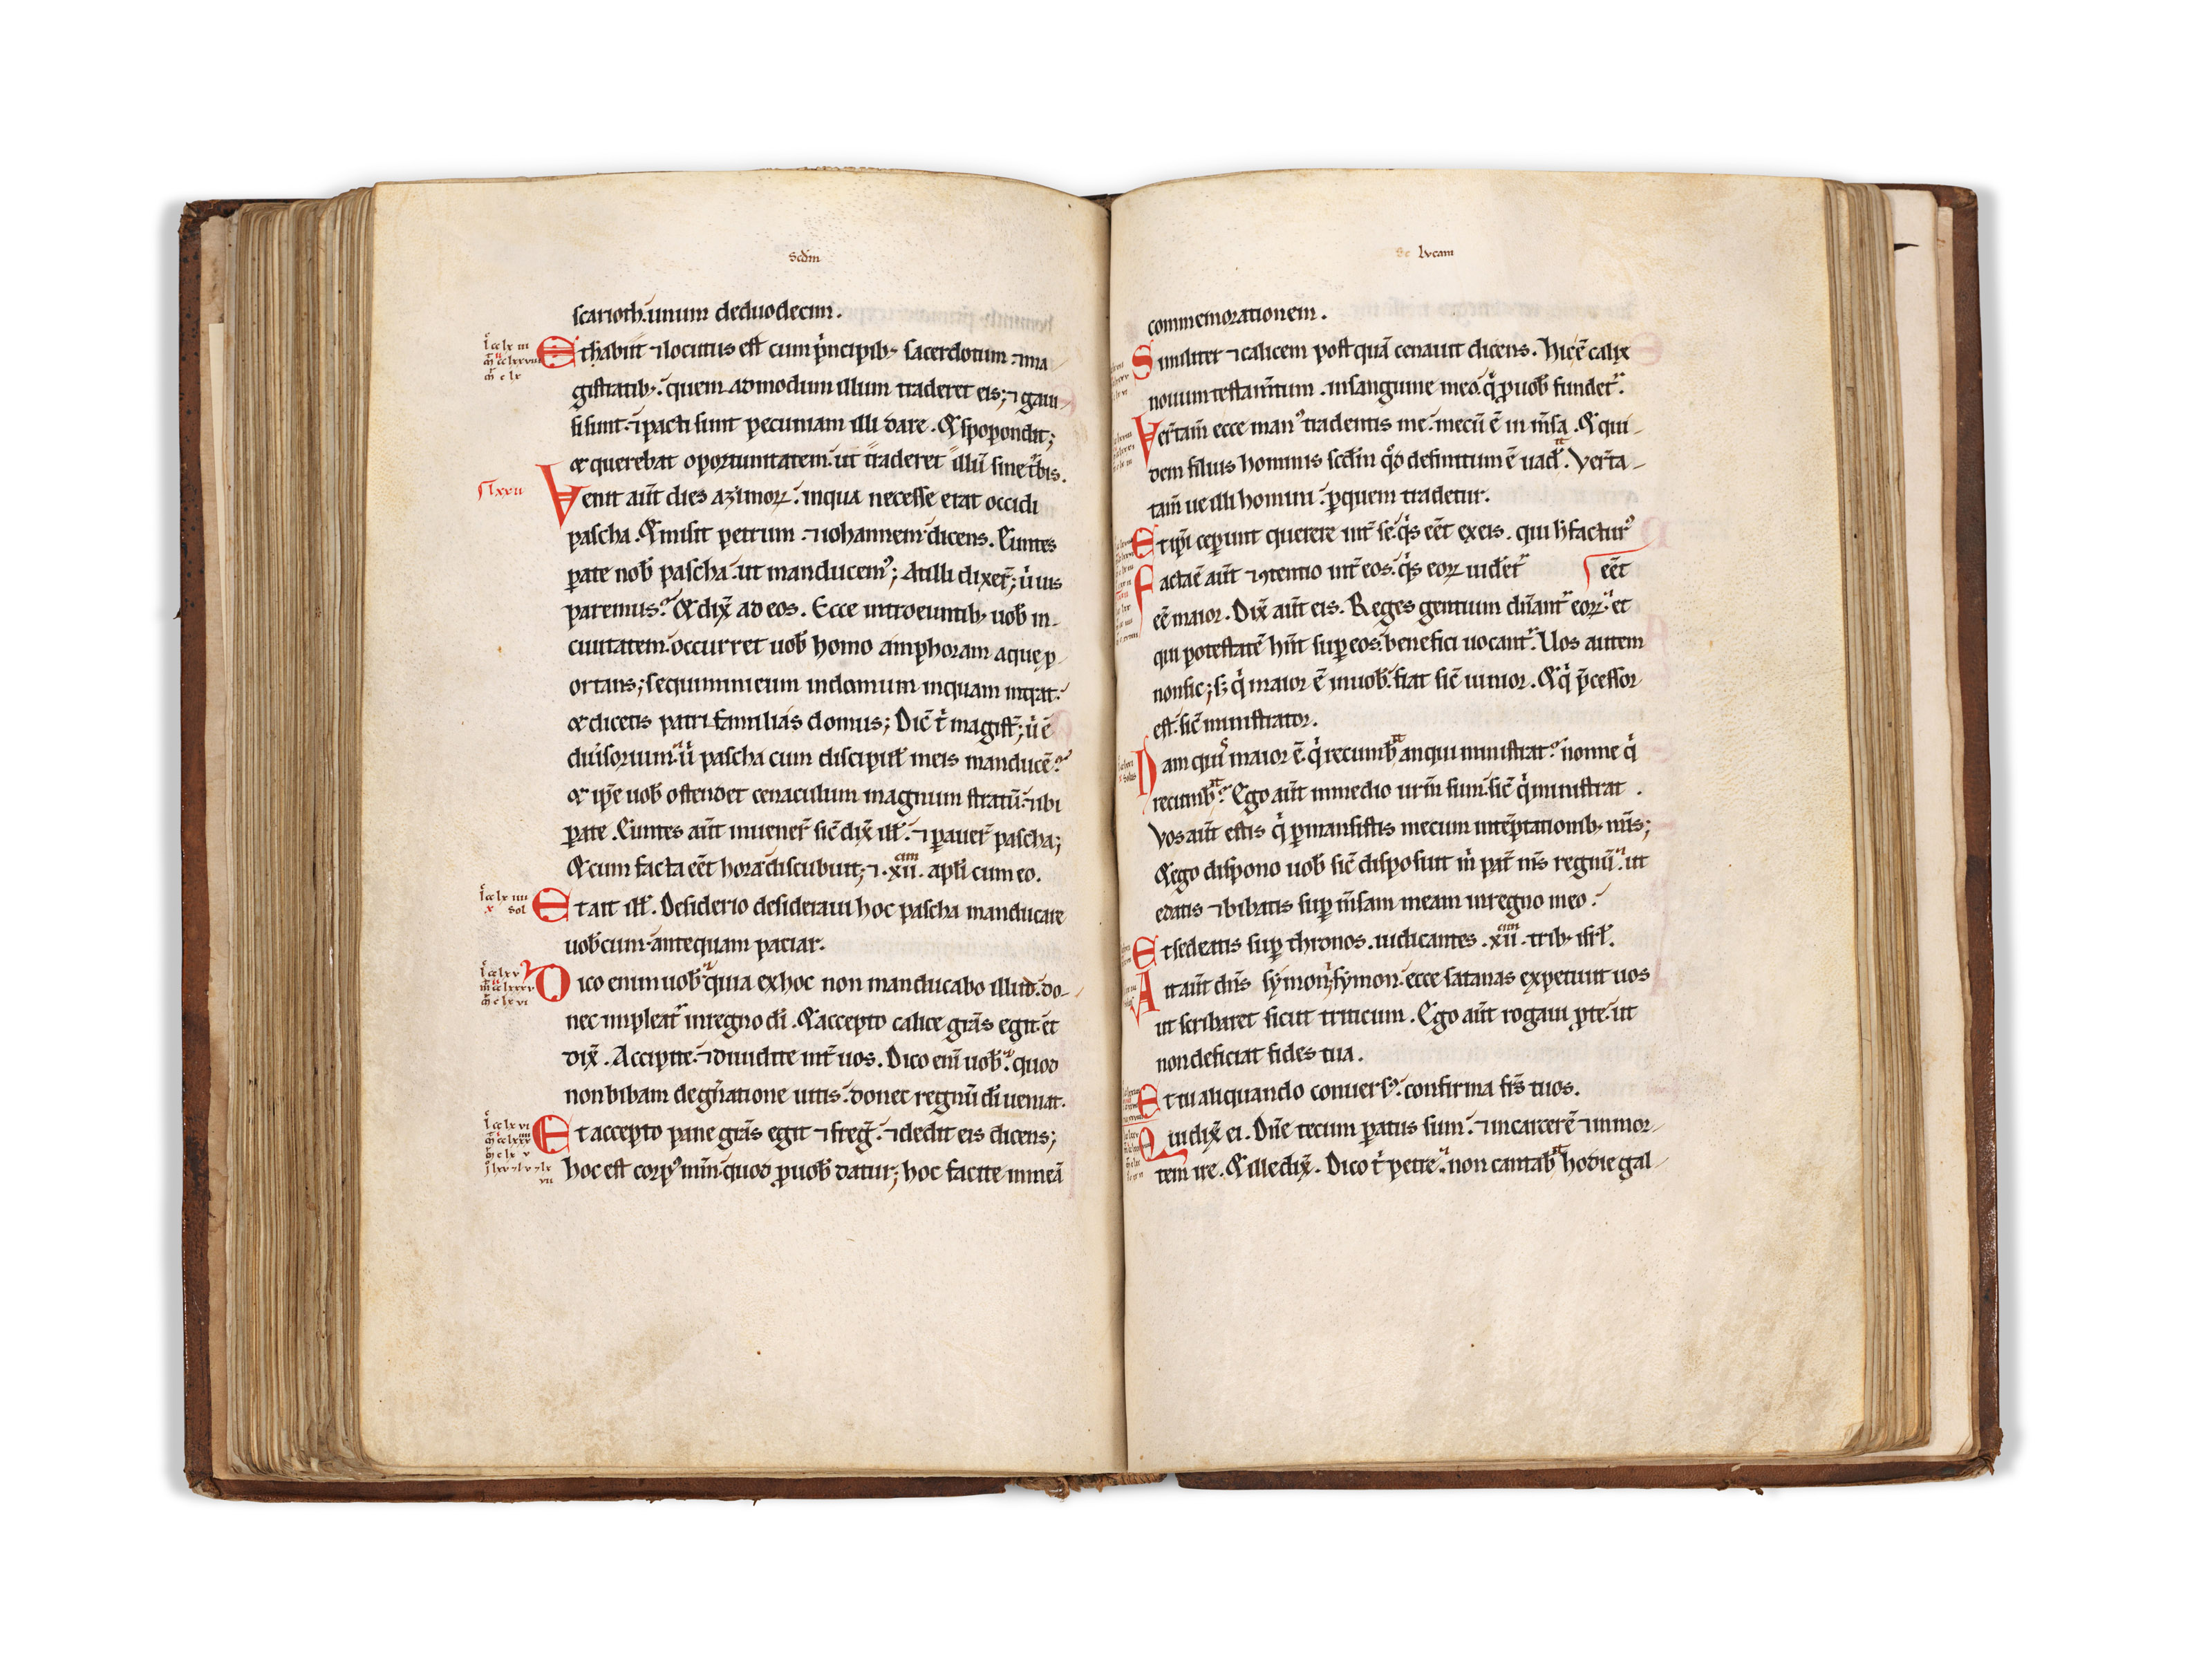 Scdm
scarioth. unum deduodecim.
Et habiit ⁊locutus est cum pͥncipib; sacerdotum ⁊ma
gistratib; quem admodum illum traderet eis; ⁊ gaui
si sunt. ⁊pacti sunt pecuniam illi dare. & spopondit;
& querebat oportunitatem. ut traderet illū sine tͬbis.
Venit aut̄ dies azimoꝝ. inqua necesse erat occidi
pascha. & misit petrum. ⁊iohannem dicens. Euntes
ꝑate nob̄ pascha. ut manducemꝰ; At illi dixer̄; uͥ uis
paremus? & dix̄ ad eos. Ecce introeuntib; uob̄ in
ciuitatem. occurret uob̄ homo amphoram aque p
ortans; sequimini eum indomum inquam intͣt.
& dicetis patri familias domus; Dic̄ tͥ magist̄; uͥ ē
diuisorium. uͥ pascha cum discipul̄ meis manducē?
& ip̄e uob̄ ostendet cenaculum magnum stratū. ⁊ibi
ꝑate. Euntes aut̄ inuener̄ sic̄ dix̄ ill̄. ⁊ ꝑauer̄ pascha;
& cum facta eēt hora discubuit; ⁊ .xii. apl̄i cum eo.
cim
Et ait ill̄. Desiderio desideraui hoc pascha manducare
uob̄cum. antequam patiar.
Dico enim uob̄. quia exhoc non manducabo illud. do-
nec impleatͬ inregno dī. & accepto calice grās egit. et
dix̄. Accipite. ⁊diuidite int̄ uos. Dico enī uob̄. quod
non bibam degn̄atione uitis. donec regnū dī ueniat.
Et accepto pane grās egit ⁊ freḡ. ⁊dedit eis dicens;
hoc est corpꝰ mm̄. quod ꝓuob̄ datur; hoc facite in meā
lxxii
sol
lvcam
commemorationem.
Similiter ⁊calicem post quā cenauit dicens. hic ē calix
nouum testam̄tum. insanguine meo. qͥ ꝓuob̄ fundetͬ.
Ver̄tam̄ ecce manꝰ tradentis me. mecū ē in m̄sa. & qui-
dem filius hominis scd̄m qͦd definitum ē uad̄. Ver̄ta-
tam̄ ue illi homini. ꝑquem tradetur.
Et ip̄i ceperunt querere int̄ se. qͥs eēt exeis. qui h̄ facturꝰ
Facta ē aut̄ ⁊ꝯtentio int̄ eos. qͥs eoꝝ uid̄etͬ eēt
eē maior. Dix̄ aut̄ eis. Reges gentium dn̄antͬ eoꝝ. et
qui potestatē hn̄t suꝑ eos. benefici uocantͬ. Uos autem
non sic; s; qͥ maior ē inuob̄. fiat sic̄ iunior. & qͥ p̄cessor
est. sic̄ ministrator.
Nam quiͥs maior ē. qͥ recumb̄ an qui ministrat? nonne qͥ
recumb̄? Ego aut̄ inmedio ur̄m sum. sic̄ qͥ ministrat.
Vos aut̄ estis qͥ ꝑmansistis mecum intēptationib; meis;
& ego dispono uob̄ sic̄ disposuit mͥ pat̄ ms̄ regnū. ut
edatis ⁊bibatis suꝑ m̄sam meam inregno meo.
Et sedeatis suꝑ thronos. iudicantes .xii. trib; isrl̄.
cim
Ait aut̄ dn̄s symon; symon. ecce satanas expetiuit uos
ut scribaret sicut triticum. Ego aut̄ rogaui ꝓte. ut
non deficiat fides tua.
Et tu aliquando conuersꝰ. confirma fr̄s tuos.
Qui dix̄ ei. Dn̄e tecum ꝑatus sum. ⁊incarcerē ⁊inmor-
tem ire. & ille dix̄. Dico tͥ petre. non cantab̄ hodie gal-